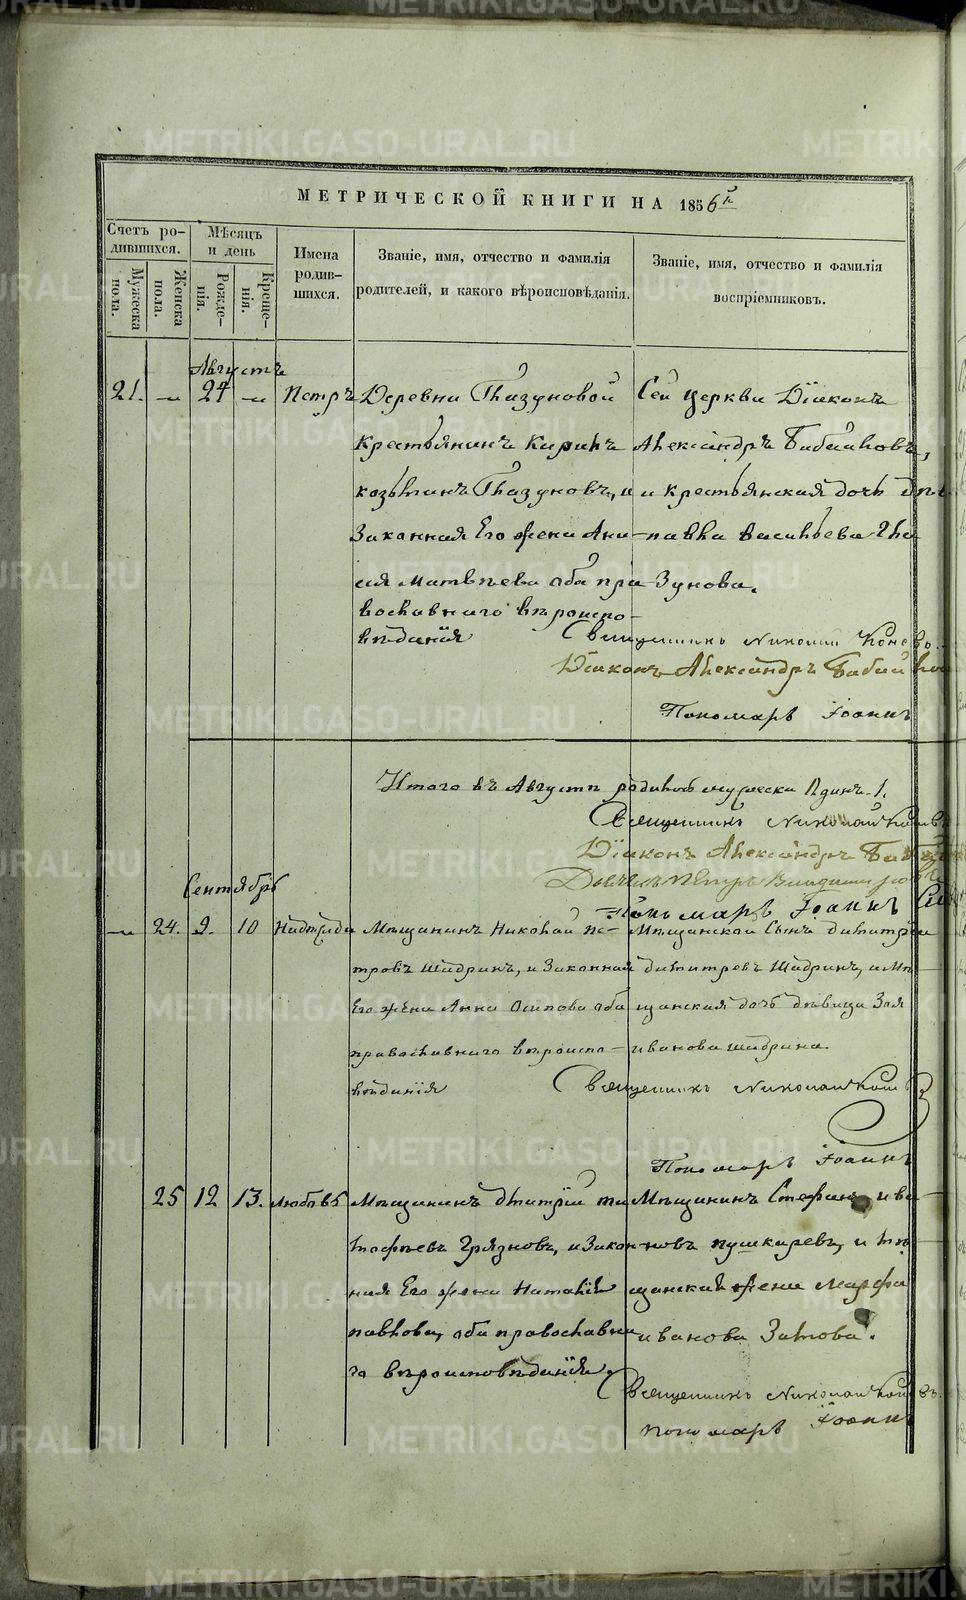 METRIKI.GASO-URAL.RU
МЕТРИЧЕСКОЙ КНИГИ НА 1856 г.
Счетъ родившихся.
Мужеска пола.
Женска пола.
Мѣсяцъ и день
Рожденія.
Крещенія.
Имена родившихся.
Званіе, имя, отчество и фамилія родителей, и какого вѣроисповѣданія.
Званіе, имя, отчество и фамилія воспріемниковъ.
Августъ
21. — 24 — Петръ
Деревни Глазуновой
крестьянинъ Кирилъ
козьминъ Глазуновъ, и
Законная Его жена Ани-
сия Матвѣева оба пра
вославнаго вѣроиспо-
вѣданія
Сей церкви Діаконъ
Александръ Бибиковъ,
и крестьянская дочь
павла васильева Гла
Зунова.
Священникъ Николай
Діаконъ Александръ
Пономарь Іоаннъ
Итого въ Августѣ родилось мужеска Одинъ. 1.
Священникъ Николай
Діаконъ Александръ
Пономарь Іоаннъ
Сентябрь
— 24. 9. 10 Надежда
Мѣщанинъ Николай пе-
тровъ Шадринъ, и Законная
Его жена Анна Осипова оба
православнаго вѣроиспо-
вѣданія
Мѣщанской Сынъ димитрій
димитревъ Шадринъ, и мѣ
щанская дочь дѣвица
иванова шадрина.
Священникъ Николай
Пономарь Іоаннъ
25 12 13. любовь
Мѣщанинъ дмитрій ти
мофѣевъ Грязновъ, и закон-
ная Его жена Наталія
павлова, оба православна
го вѣроисповѣданія.
Мѣщанинъ Стефанъ ива
новъ пушкаревъ, и мѣ
щанская жена марфа
иванова
Священникъ Николай
пономарь Іоаннъ